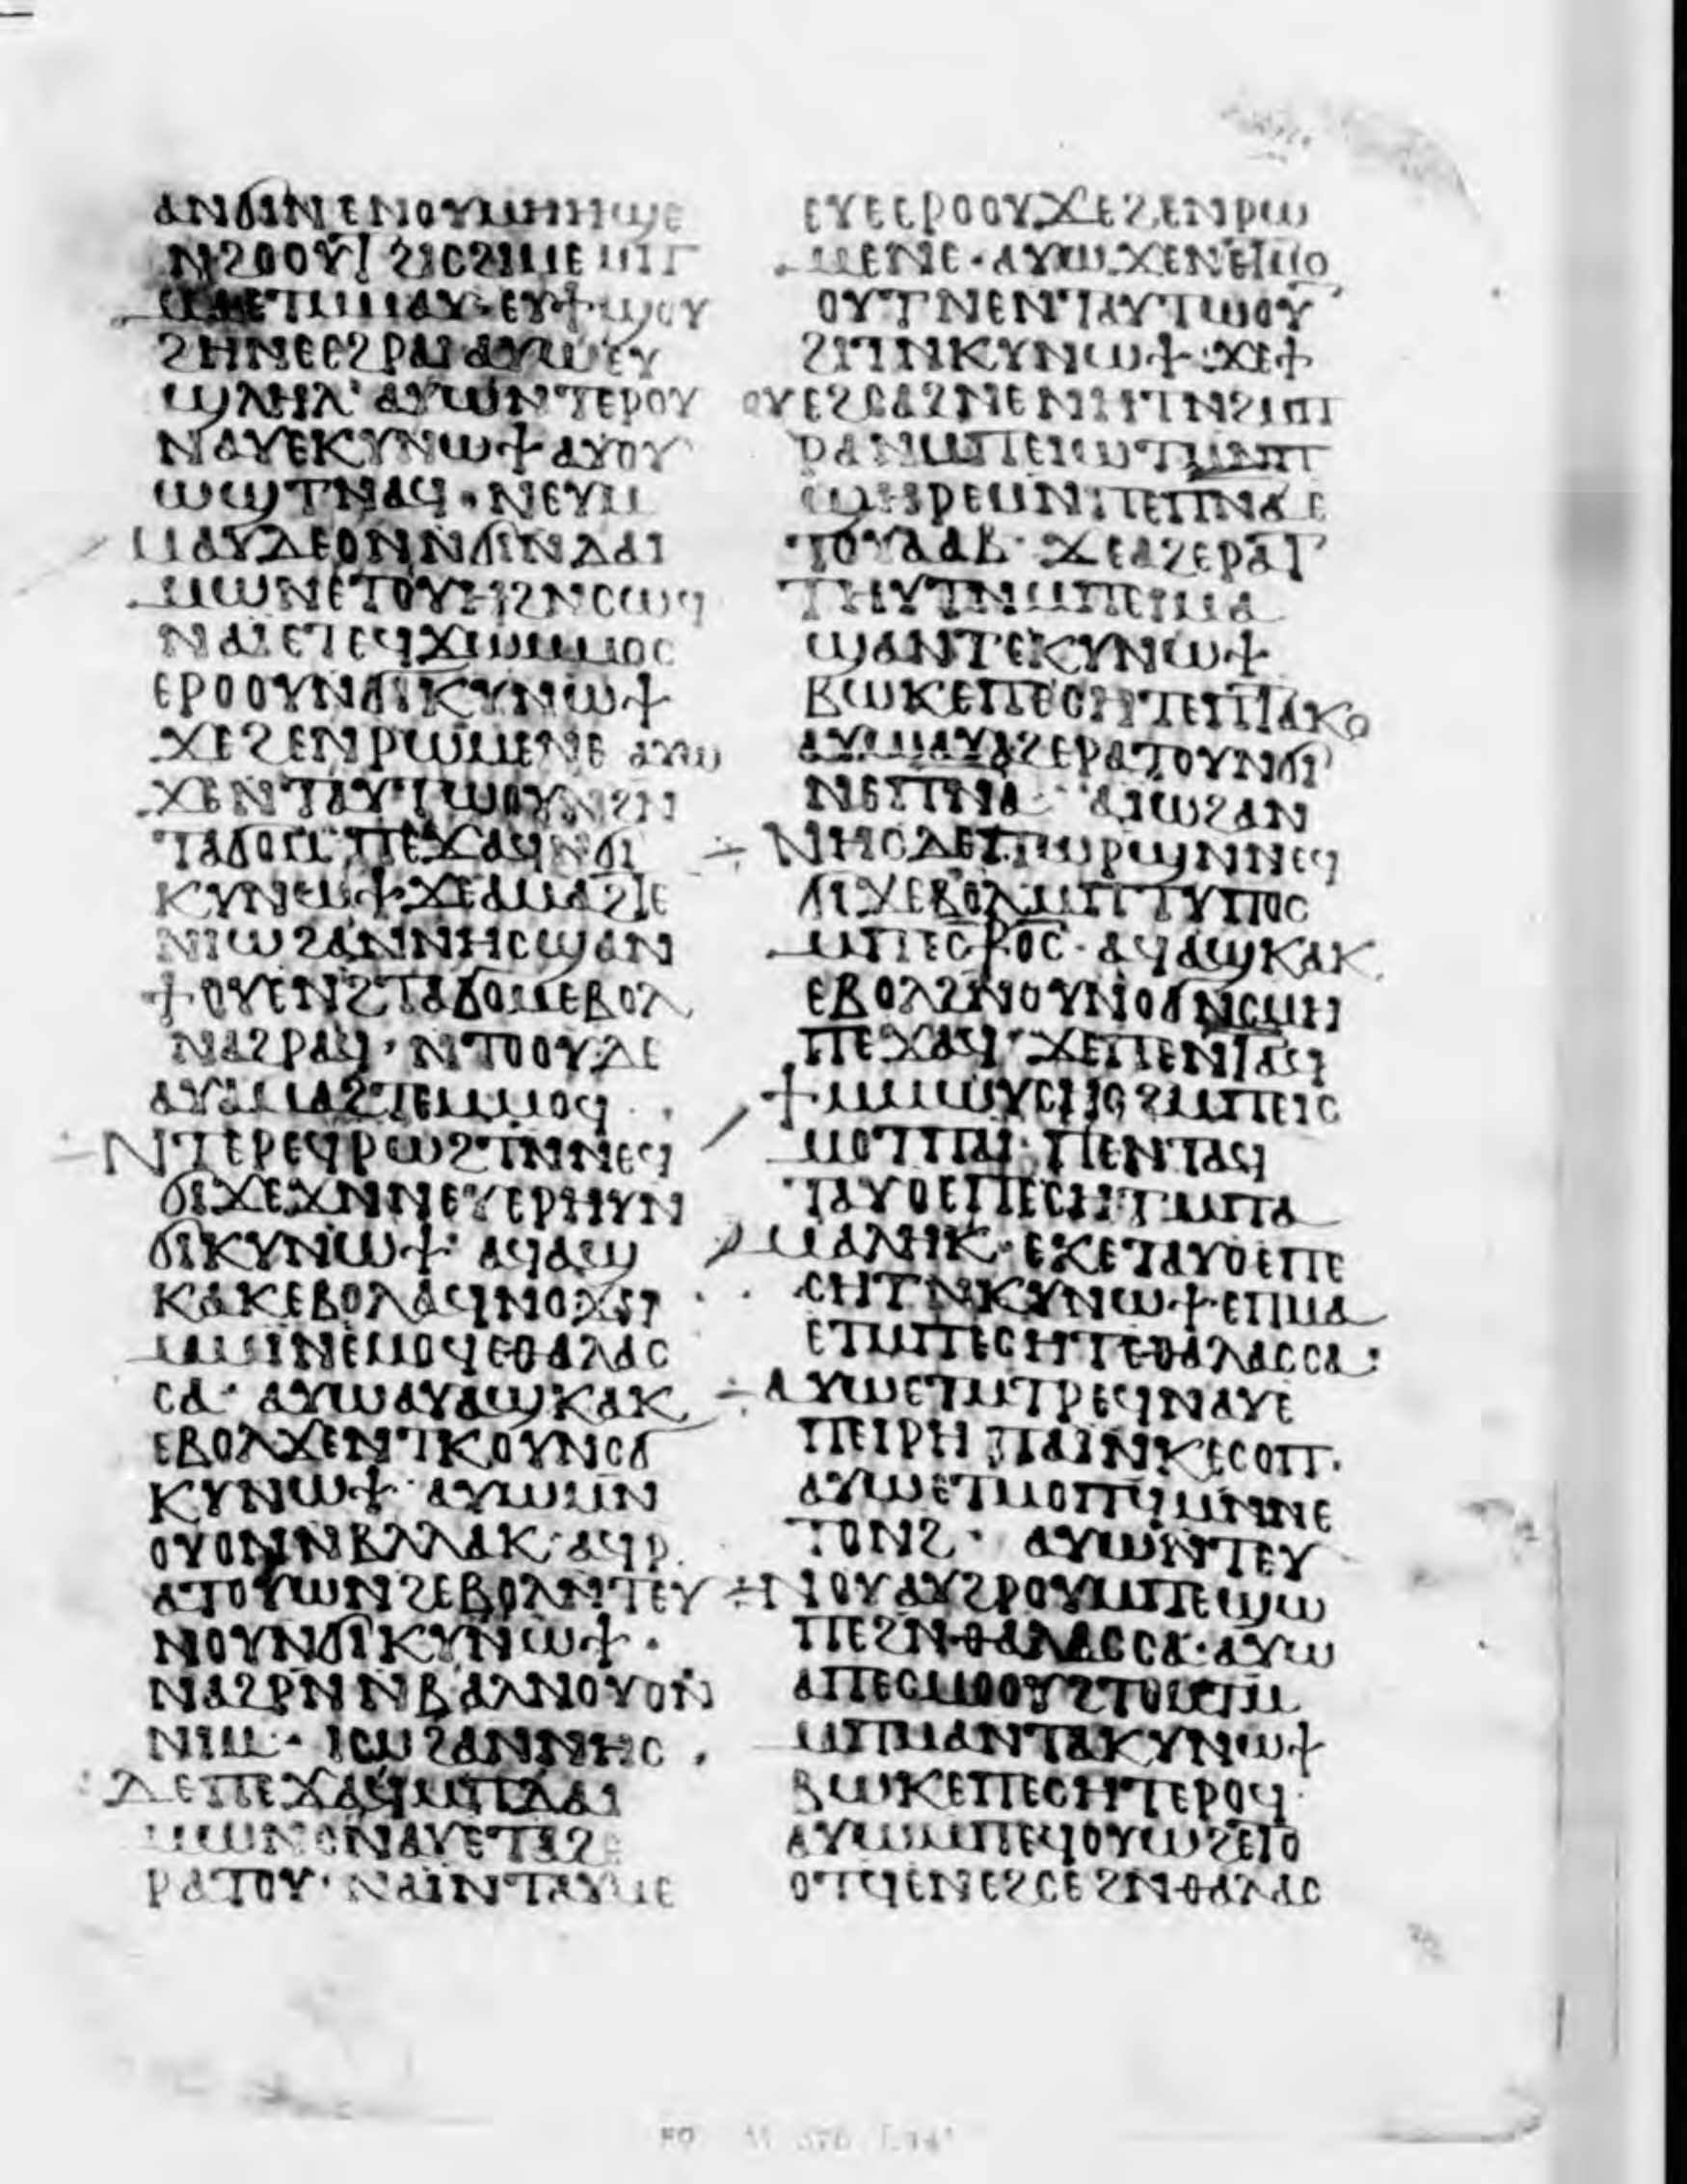 ⲁⲛϭⲓⲛⲉⲛⲟⲩⲙⲏⲏϣⲉ
ⲛϩⲟⲟⲩⲧ ϩⲓⲥϩⲓⲙⲉ ⲙⲡ
ⲙⲁⲉⲧⲙⲙⲁⲩ· ⲉⲩϯϣⲟⲩ
ϩⲏⲛⲉⲉϩⲣⲁⲓ ⲁⲩⲱⲉⲩ
ϣⲗⲏⲗ· ⲁⲩⲱⲛⲧⲉⲣⲟⲩ
ⲛⲁⲩⲉⲕⲩⲛⲱϯ ⲁⲩⲟⲩ
ⲱϣⲧⲛⲁϥ· ⲛⲉⲩⲙ
ⲙⲁⲩⲇⲉⲟⲛⲛϭⲓⲛⲇⲁⲓ
ⲙⲱⲛⲉⲧⲟⲩⲏϩⲛⲥⲱϥ
ⲛⲁⲓⲉⲧⲉϥϫⲱⲙⲙⲟⲥ
ⲉⲣⲟⲟⲩⲛϭⲓⲕⲩⲛⲱϯ
ϫⲉϩⲉⲛⲣⲱⲙⲉⲛⲉ ⲁⲩⲱ
ϫⲉⲛⲧⲁⲩⲧⲱⲟⲩⲛϩⲛ
ⲧⲁϭⲟⲙ· ⲡⲉϫⲁϥⲛϭⲓ
ⲕⲩⲛⲱϯ· ϫⲉⲁⲙⲁϩⲧⲉ
ⲛⲓⲱϩⲁⲛⲛⲏⲥϣⲁⲛ
ϯⲟⲩⲉⲛϩⲧⲁϭⲟⲙⲉⲃⲟⲗ
ⲛⲁϩⲣⲁϥ· ⲛⲧⲟⲟⲩⲇⲉ
ⲁⲩⲁⲙⲁϩⲧⲉⲙⲙⲟϥ
ⲛⲧⲉⲣⲉϥⲣⲱϩⲧⲛⲛⲉϥ
ϭⲓϫⲉϫⲛⲛⲉⲩⲉⲣⲏⲩⲛ
ϭⲓⲕⲩⲛⲱϯ· ⲁϥⲁϣ
ⲕⲁⲕⲉⲃⲟⲗⲁϥⲛⲟϫϥ
ⲙⲙⲓⲛⲉⲙⲟϥⲉⲑⲁⲗⲁⲥ
ⲥⲁ· ⲁⲩⲱⲁⲩⲁϣⲕⲁⲕ
ⲉⲃⲟⲗϫⲉⲛⲧⲕⲟⲩⲛⲟϭ
ⲕⲩⲛⲱϯ· ⲁⲩⲱⲙⲛ
ⲟⲩⲟⲛⲛⲃⲗⲗⲁⲕ· ⲁϥⲣ
ⲁⲧⲟⲩⲱⲛϩⲉⲃⲟⲗⲛⲧⲉⲩ
ⲛⲟⲩⲛϭⲓⲕⲩⲛⲱϯ·
ⲛⲁϩⲣⲛⲛⲃⲁⲗⲛⲟⲩⲟⲛ
ⲛⲓⲙ· ⲓⲱϩⲁⲛⲛⲏⲥ
ⲇⲉⲡⲉϫⲁϥⲙⲡⲇⲁⲓ
ⲙⲱⲛⲟⲛⲁⲩⲉⲧⲁϩⲉ
ⲣⲁⲧⲟⲩ· ⲛⲁⲓⲛⲧⲁⲩⲙⲉ
ⲉⲩⲉⲉⲣⲟⲟⲩϫⲉϩⲉⲛⲣⲱ
ⲙⲉⲛⲉ· ⲁⲩⲱϫⲉⲛⲉⲧⲙⲟ
ⲟⲩⲧⲛⲉⲛⲧⲁⲩⲧⲱⲟⲩ
ϩⲓⲧⲛⲕⲩⲛⲱϯ· ϫⲉϯ
ⲟⲩⲉϩⲥⲁϩⲛⲉⲛⲏⲧⲛϩⲙⲡ
ⲣⲁⲛⲙⲡⲉⲓⲱⲧⲙⲛⲡ
ϣⲏⲣⲉⲙⲛⲡⲉⲡⲛⲁⲉ
ⲧⲟⲩⲁⲁⲃ· ϫⲉⲁϩⲉⲣⲁⲧ
ⲧⲏⲩⲧⲛⲙⲡⲉⲓⲙⲁ
ϣⲁⲛⲧⲉⲕⲩⲛⲱϯ
ⲃⲱⲕⲉⲡⲉⲥⲏⲧⲉⲡⲧⲁⲕⲟ
ⲁⲩⲱⲁⲩⲁϩⲉⲣⲁⲧⲟⲩⲛϭⲓ
ⲛⲉⲡⲛⲁ· ⲁⲓⲱϩⲁⲛ
ⲛⲏⲥⲇⲉⲡⲱⲣϣⲛⲛⲉϥ
ϭⲓϫⲉⲃⲟⲗⲙⲡⲧⲩⲡⲟⲥ
ⲙⲡⲉⲥⲣⲟⲥ· ⲁϥⲁϣⲕⲁⲕ
ⲉⲃⲟⲗϩⲛⲟⲩⲛⲟϭⲛⲥⲙⲏ
ⲡⲉϫⲁϥ· ϫⲉⲡⲉⲛⲧⲁϥ
ϯⲙⲙⲱⲩⲥⲏⲥϩⲙⲡⲉⲓⲥ
ⲙⲟⲧⲡⲁⲓ· ⲡⲉⲛⲧⲁϥ
ⲧⲁⲩⲟⲉⲡⲉⲥⲏⲧⲙⲡⲁ
ⲙⲁⲗⲏⲕ· ⲉⲕⲉⲧⲁⲩⲟⲉⲡⲉ
ⲥⲏⲧⲛⲕⲩⲛⲱϯ· ⲉⲡⲙⲁ
ⲉⲧⲙⲡⲉⲥⲏⲧⲉⲑⲁⲗⲁⲥⲥⲁ·
ⲁⲩⲱⲉⲧⲙⲧⲣⲉϥⲛⲁⲩⲉ
ⲡⲉⲓⲣⲏ ⲡⲁⲓⲛⲕⲉⲥⲟⲡ·
ⲁⲩⲱⲉⲧⲙⲟⲡϥⲙⲛⲛⲉ
ⲧⲟⲛϩ· ⲁⲩⲱⲛⲧⲉⲩ
ⲛⲟⲩⲁⲩϩⲣⲟⲩⲙⲡⲉϣⲱ
ⲡⲉϩⲛⲑⲁⲗⲁⲥⲥⲁ· ⲁⲩⲱ
ⲁⲡⲉⲥⲙⲟⲟⲩ
ⲙⲡⲙⲁⲛⲧⲁⲕⲩⲛⲱϯ
ⲃⲱⲕⲉⲡⲉⲥⲏⲧⲉⲣⲟϥ·
ⲁⲩⲱⲙⲡⲉϥⲟⲩⲱϩⲉⲧⲟ
ⲟⲧϥⲉⲛⲉϩⲥⲉϩⲛⲑⲁⲗⲁⲥ